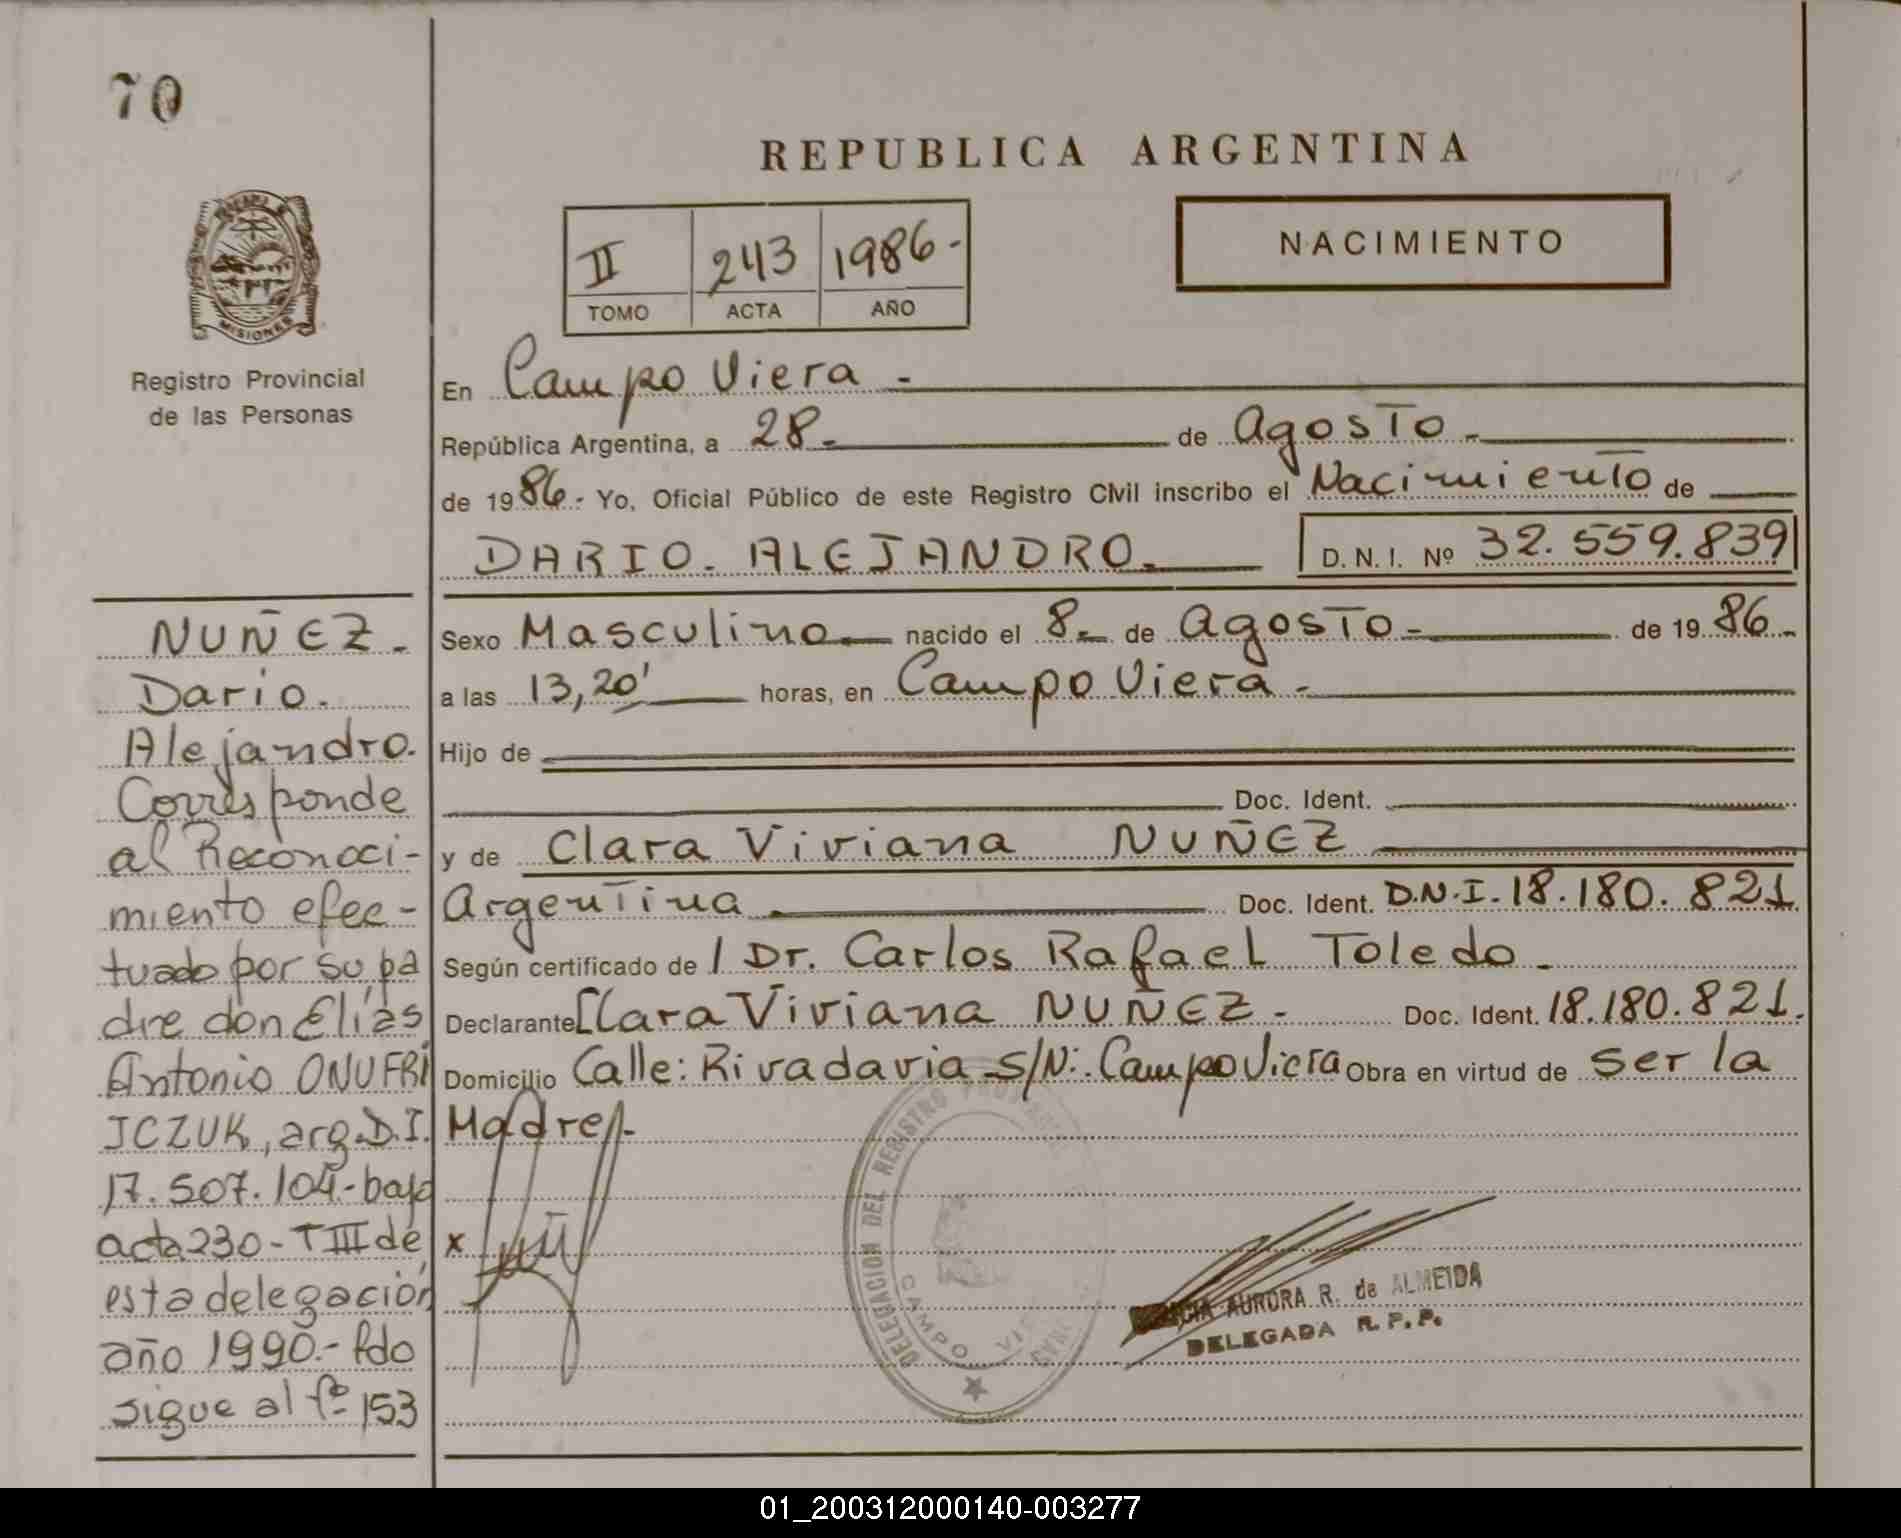 70
REPUBLICA ARGENTINA
II 243 1986-
TOMO ACTA AÑO
NACIMIENTO
MISIONES
Registro Provincial
de las Personas
En Campo Viera -
República Argentina, a 28.- de Agosto.-
de 1986.- Yo, Oficial Público de este Registro Civil inscribo el Nacimiento de
DARIO. ALEJANDRO.- D. N. I. Nº 32.559.839
Sexo Masculino nacido el 8.- de Agosto.- de 1986.-
a las 13,20' horas, en Campo Viera.-
Hijo de
Doc. Ident.
y de Clara Viviana NUÑEZ
Argentina Doc. Ident. D.N.I. 18.180.821
Según certificado de / Dr. Carlos Rafael Toledo.-
Declarante Clara Viviana NUÑEZ.- Doc. Ident. 18.180.821.
Domicilio Calle: Rivadavia S/N: Campo Viera Obra en virtud de Ser la
Madre.-
NUÑEZ.-
Dario.
Alejandro.
Corresponde
al Reconoci-
miento efec-
tuado por su pa
dre don Elías
Antonio ONUFRI
JCZUK, arg. D.I.
17.507.104.- bajo
acta 230 - TIII de
esta delegación
año 1990.- fdo
sigue al fº 153
x
DELEGACION DEL REGISTRO
CAMPO
AURORA R. de ALMEIDA
DELEGADA R.P.P.
01_200312000140-003277